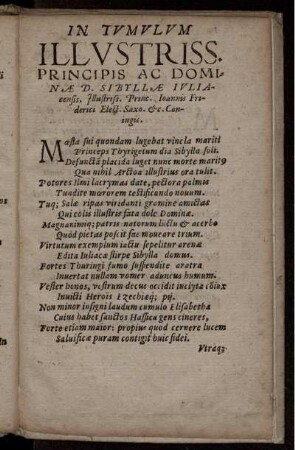 IN TVMVLVM
ILLVSTRISS.
PRINCIPIS AC DOMI-
NÆ D. SIBYLLÆ IVLIA-
censis, Illustriss. Princ. Ioannis Fri-
derici Elect. Saxo. &c. Con-
iugis.
Mœsta sui quondam lugebat vincla mariti
Princeps Thyrigetum dia Sibylla soli.
Defunctā placida luget nunc morte maritꝰ
Qua nihil Arctoa illustrius ora tulit.
Potores Ilmi lacrymas date, pectora palmis
Tundite mœrorem testificando nouum.
Tuq; Salæ ripas viridanti gramine amictas
Qui colis illustris fata dole Dominæ.
Magnanimūq; patris natorum luctu & acerbo
Quod pietas poscit fac moueare trium.
Virtutum exemplum iactu sepelitur arenæ
Edita Iuliacæ stirpe Sibylla domus.
Fortes Thuringi fumo suspendite aratra
Inuertat nullam vomer aduncus humum.
Vester honos, vestrum decus occidit inclyta cōiux
Inuicti Herois Ezechiæq; pij.
Non minor insigni laudum cumulo Elisabetha
Cuius habet sanctos Hassica gens cineres,
Forte etiam maior: propius quod cernere lucem
Saluificæ puram contigit huic fidei.
Vtraq;